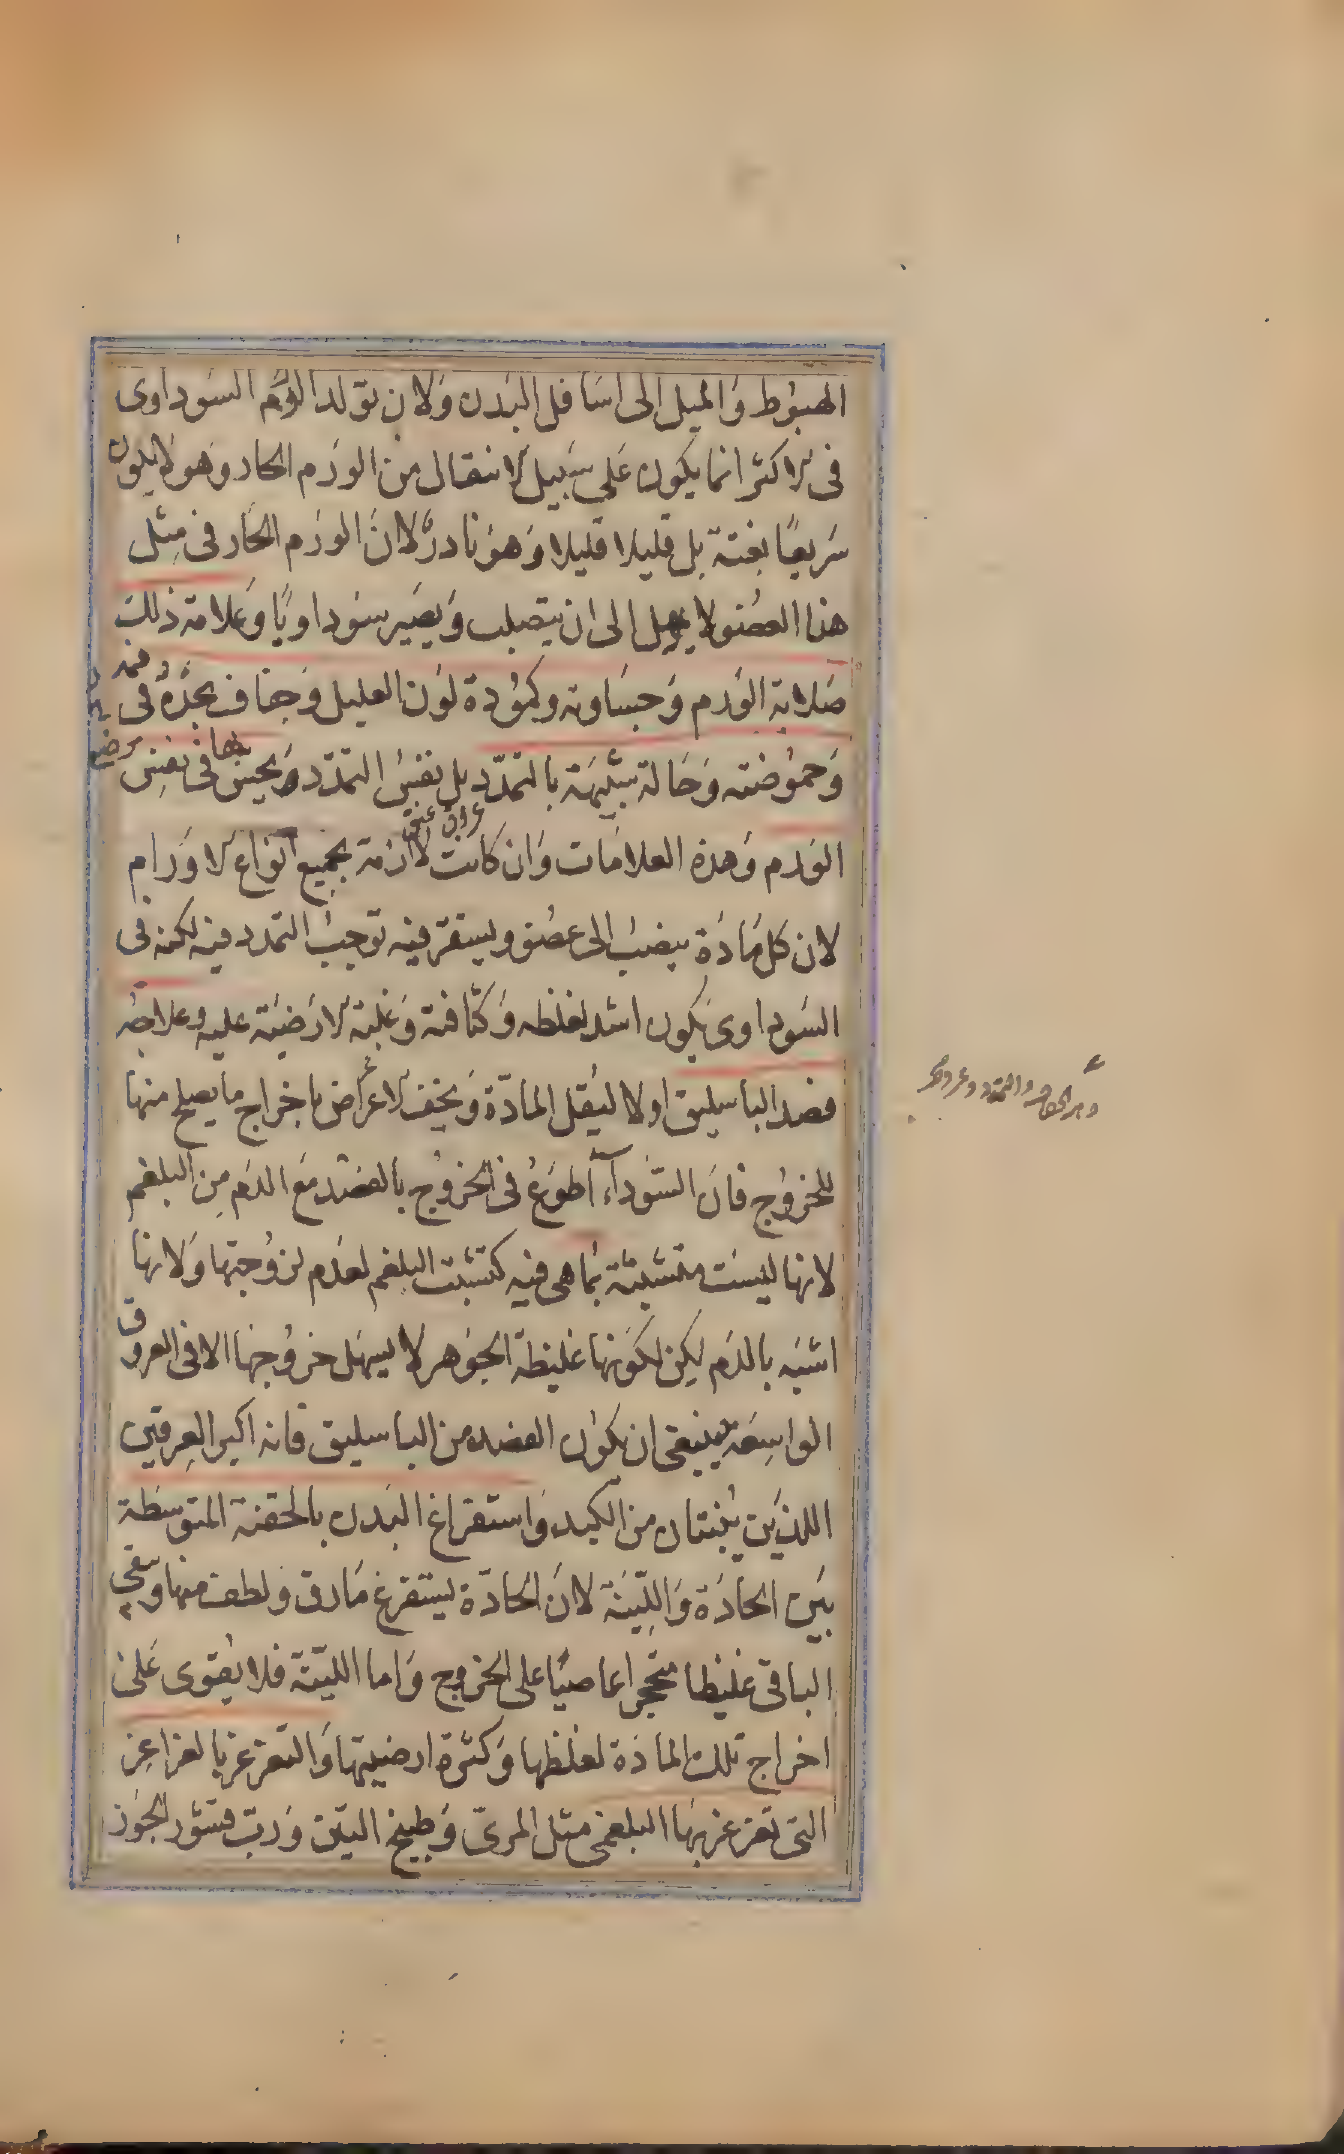 الهبوط والميل الى اسافل البدن ولان تولد الورم السوداوى
فى الاكثر انما يكون على سبيل الانتقال من الورم الحار وهو لا يكون
سريعا بغتة بل قليلا قليلا وهو نادر لان الورم الحار فى مثل
هذا العضو لا يمهل الى ان يتصلب ويصير سوداويا وعلامة ذلك
صلابة الورم وجساوته وكمودة لون العليل وجفاف يجده فى فمه
وحموضته وحالة شبيهة بالتمدد بل نفس التمدد يحس بها فى نفس موضع
الورم وهذه العلامات وان كانت لازمة بجميع انواع الاورام
لان كل مادة ينصب الى عضو ويستقر فيه توجب التمدد فيه لكنه فى
السوداوى يكون اشد لغلظه وكثافته وغلبة الارضية عليه وعلاجه
فصد الباسليق اولا ليقل المادة ويخف الاعراض باخراج ما يصلح منها
للخروج فان السوداء اطوع فى الخروج بالفصد مع الدم من البلغم
لانها ليست متشبثة بما هى فيه كتشبث البلغم لعدم لزوجتها ولانها
اشبه بالدم لكن لكونها غليظة الجوهر لا يسهل خروجها الا فى العروق
الواسعة فينبغى ان يكون الفصد من الباسليق فانه اكبر العرقين
اللذين ينبتان من الكبد واستفراغ البدن بالحقنة المتوسطة
بين الحادة واللينة لان الحادة يستفرغ ما رق ولطف منها وبقى
الباقى غليظا متحجرا عاصيا على الخروج واما اللينة فلا يقوى على
اخراج تلك المادة لغلظها وكثرة ارضيتها والتغرغر بالغراغر
التى تغرغر بها البلغمى مثل المرى وطبيخ التين ورب قشور الجوز